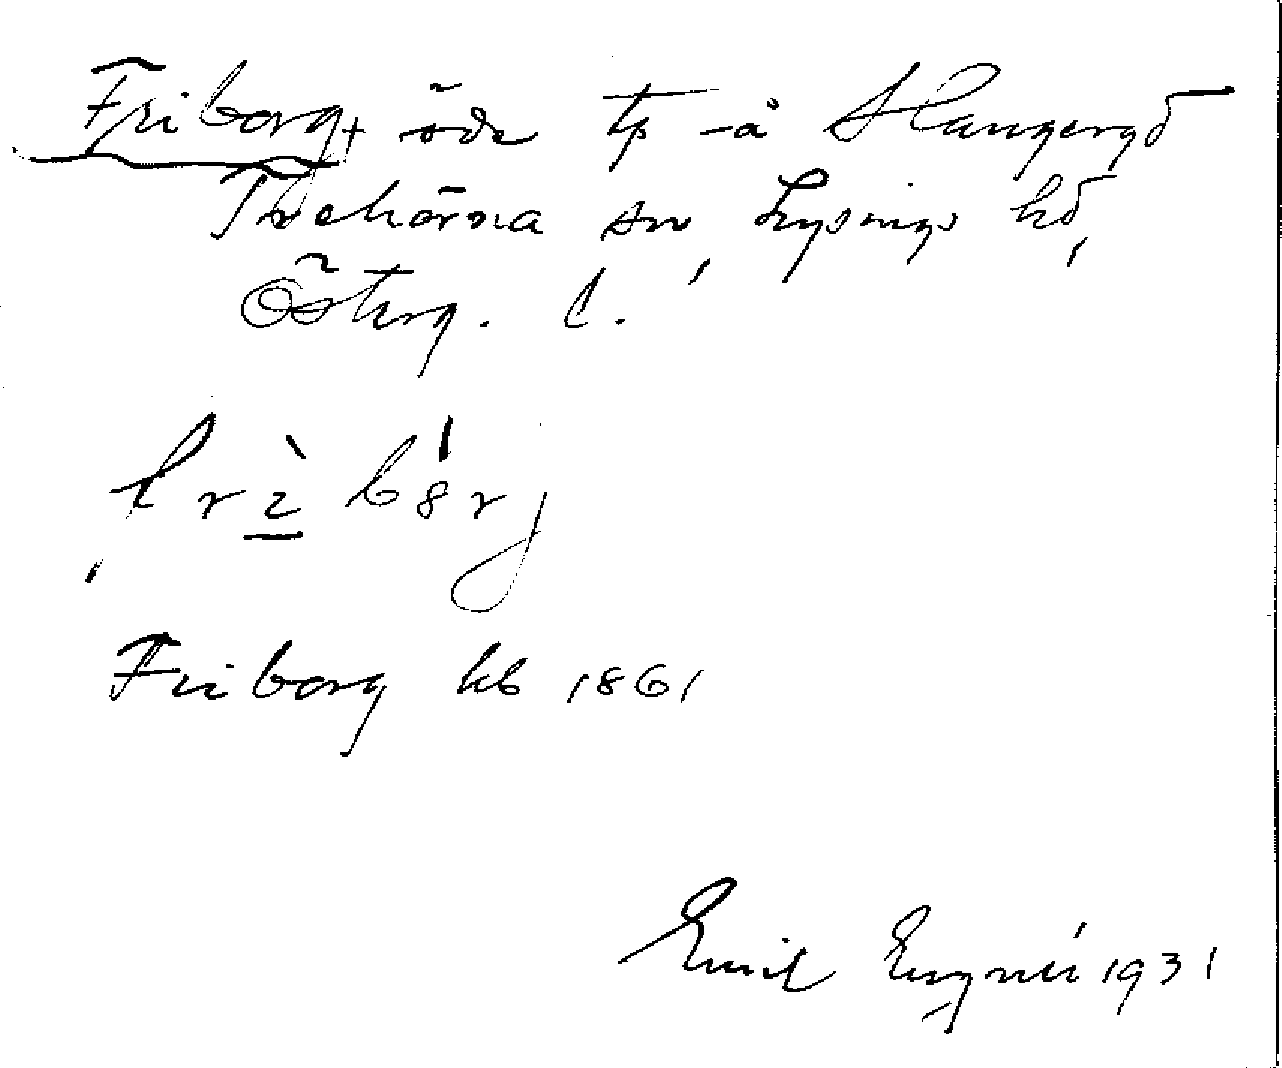 Friborg, öde tp å Haugergd
Trehörna sn, Lysings hd,
Österg. l.
frìbórj
Friborg kb 1861
Emil Engnér 1931